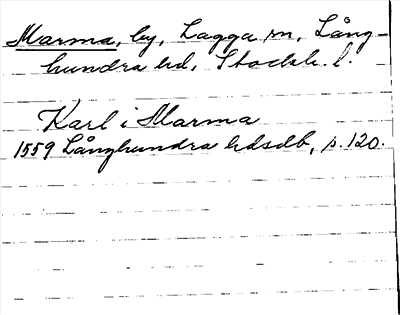 Marma, by, Lagga sn, Lång-
hundra hd, Stockh. l.
Karl i Marma
1559 Långhundra hdsdb, s. 120.